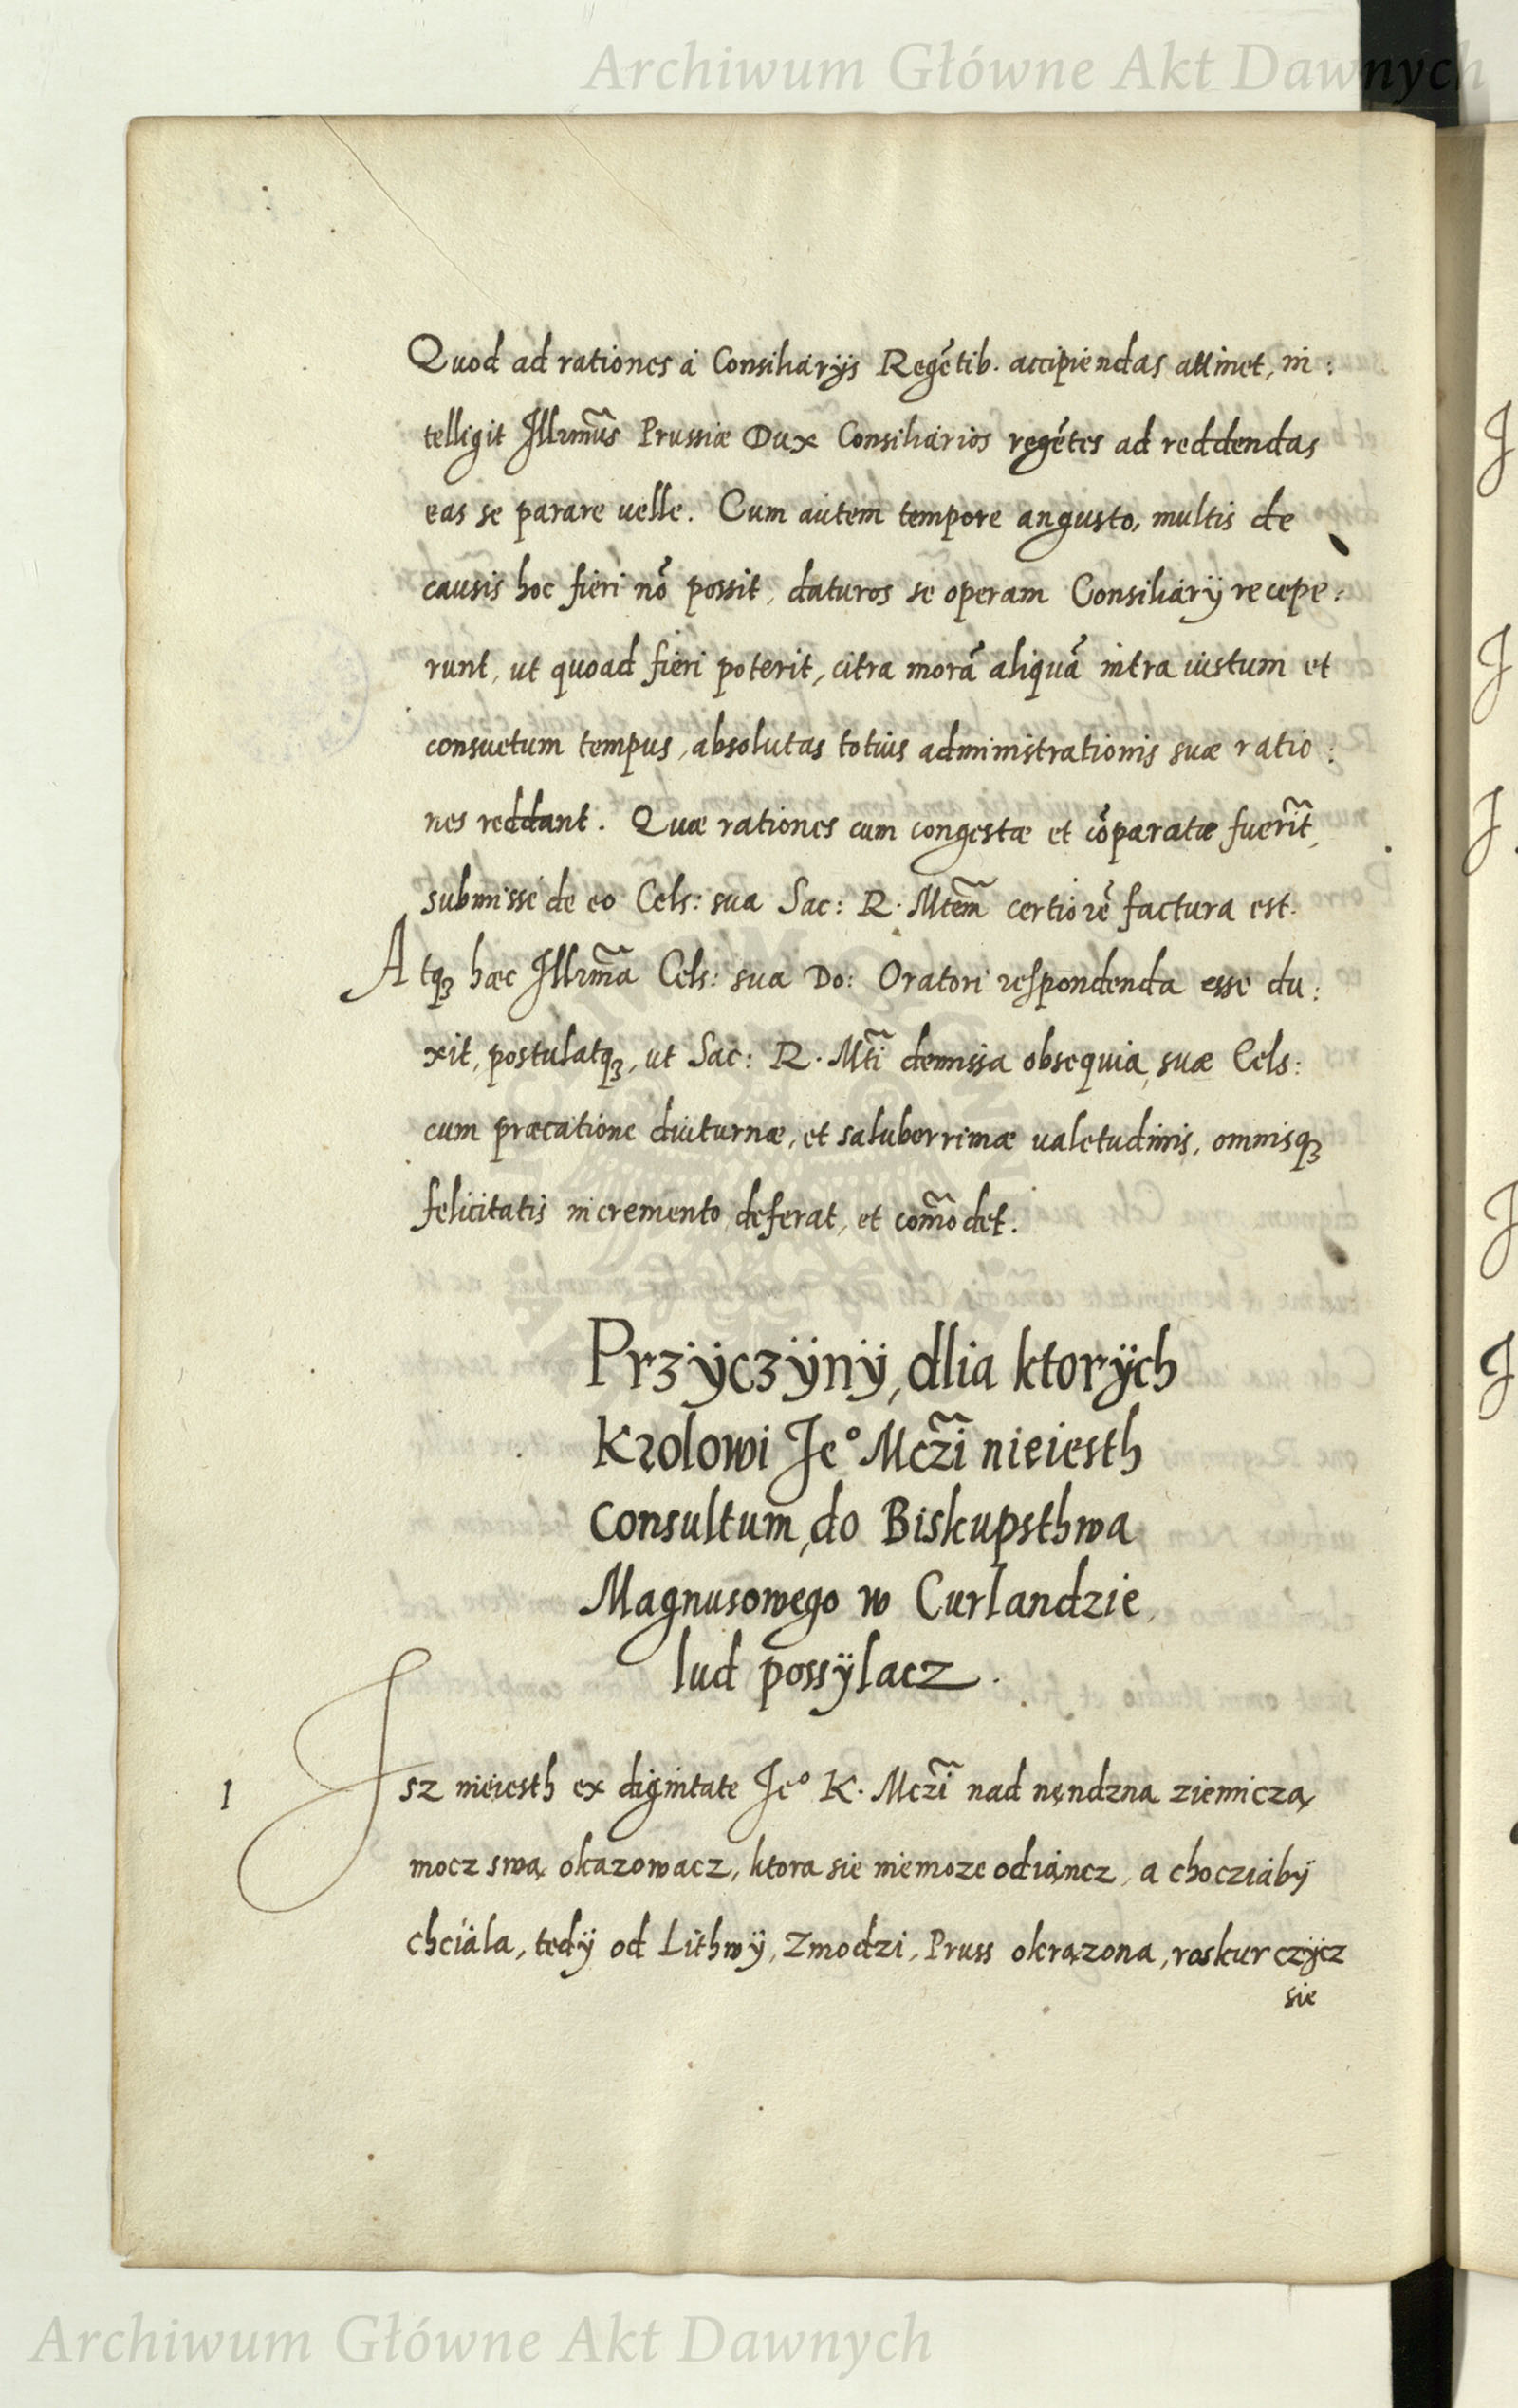 Archiwum Główne Akt Dawnych
Quod ad rationes à Consiliarijs Regẽtib. accipiendas attinet, in:
telligit Illrmũs Prussiæ Dux Consiliarios regẽtes ad reddendas
eas se parare uelle. Cum autem tempore angusto, multis de
causis hoc fieri nõ possit, daturos se operam Consiliarÿ recepe:
runt, ut quoad fieri poterit, citra morã aliquã intra iustum et
consuetum tempus, absolutas totius administrationis suæ ratio:
nes reddant. Quæ rationes cum congestæ et cõparatæ fuerĩt,
submissè de eo Cels: sua Sac: R. Mtem̃ certiorẽ factura est.
Atqꝫ hæc Illrmã Cels: sua Do: Oratori respondenda esse du:
xit, postulatqꝫ, ut Sac: R. Mtĩ demissa obsequia suæ Cels:
cum præcatione diuturnæ, et saluberrimæ ualetudinis, omnisqꝫ
felicitatis incremento deferat, et com̃odet.
Przÿczÿnÿ, dlia ktorÿch
Krolowi Je° Mczĩ nieiesth
consultum, do Biskupsthwa
Magnusowego w Curlandzie
lud possÿlacz.
1 Jsz nieiesth ex dignitate Je° K. Mczĩ nad nęndzna ziemiczą
mocz swą okazowacz, ktora sie niemoze odiąncz, a chocziabÿ
chciala, tedÿ od Lithwÿ, Zmodzi, Pruss okrązona, roskurczÿcz
sie
Archiwum Główne Akt Dawnych